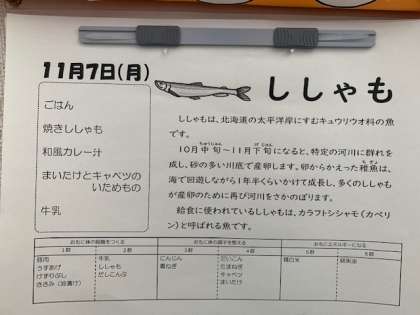 11月7日(月)
ししゃも
ごはん
焼きししゃも
和風カレー汁
まいたけとキャベツの
いためもの
牛乳
ししゃもは、北海道の太平洋岸にすむキュウリウオ科の魚
です。
10月中旬〜11月下旬になると、特定の河川に群れを
成し、砂の多い川底で産卵します。卵からかえった稚魚は、
海で回遊しながら1年半くらいかけて成長し、多くのししゃも
が産卵のために再び河川をさかのぼります。
給食に使われているししゃもは、カラフトシシャモ(カペリ
ン)と呼ばれる魚です。
おもに体の組織をつくる おもに体の調子を整える おもにエネルギーになる
1群 2群 3群 4群 5群 6群
豚肉 牛乳 にんじん だいこん 精白米
うすあげ ししゃも 青ねぎ たまねぎ
けずりぶし だしこんぶ キャベツ
まいたけ